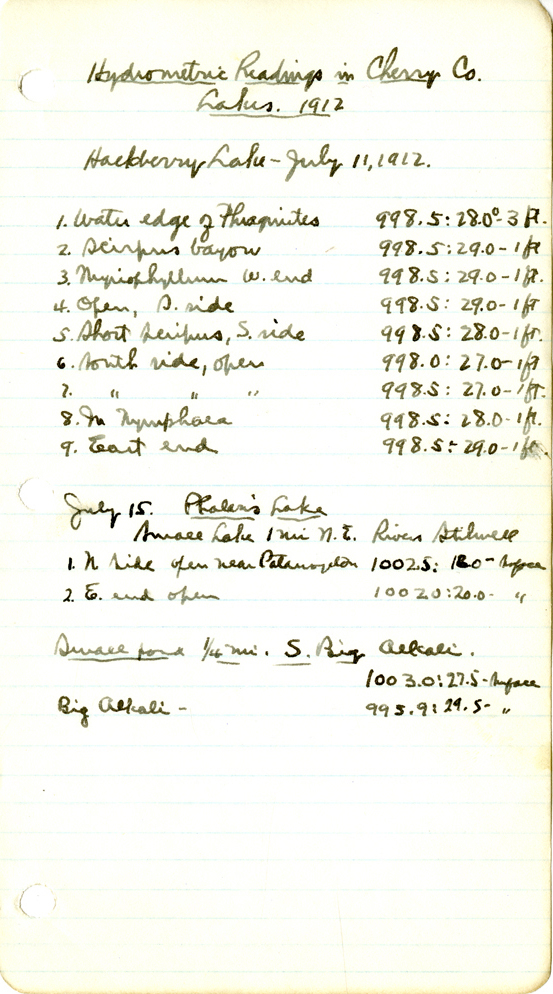 Hydrometric Readings in Cherry Co.
Lakes. 1912
Hackberry Lake - July 11, 1912.
1. Water edge of Phragmites 998.5: 28.0° - 3 ft.
2. Scirpus bayou 998.5: 29.0 - 1 ft
3. Myriophyllum W. end 998.5: 29.0 - 1 ft.
4. Open, S. side 998.5: 29.0 - 1 ft
5. Short Scirpus, S. side 998.5: 28.0 - 1 ft.
6. South side, open 998.0: 27.0 - 1 ft
7. " " " 998.5: 27.0 - 1 ft.
8. In Nymphaea 998.5: 28.0 - 1 ft.
9. East end 998.5: 29.0 - 1 ft.
July 15. Phalan's Lake
Small Lake 1 mi N.E.
1. N side open near Potamogeton 1002.5: - surface
2. E. end open 1002.0: 20.0 - "
Small pond 1/4 mi. S. Big Alkali.
1003.0: 27.5 - surface
Big Alkali - 995.9: 29.5 - "